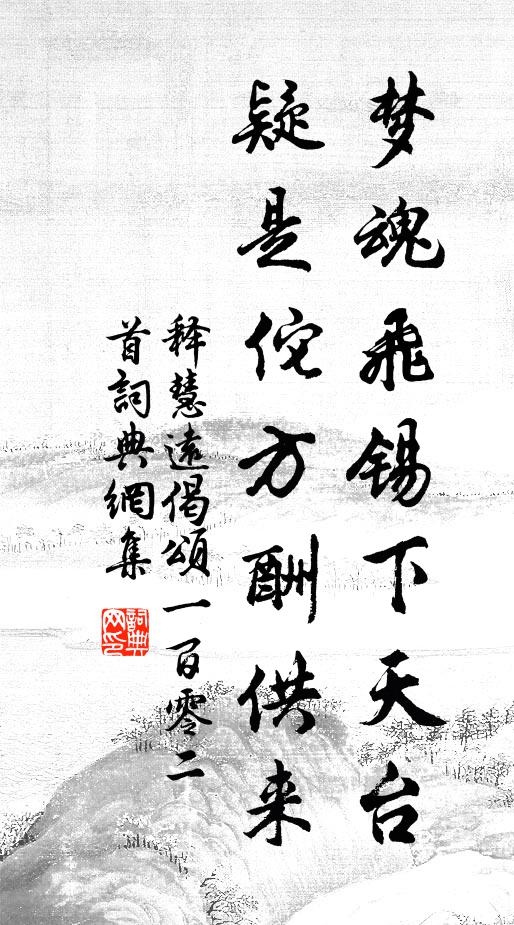 梦魂飛锡下天台
疑是佗方酬供来
释慧遠偈頌一百零二
首詞典網集
詞典
网印